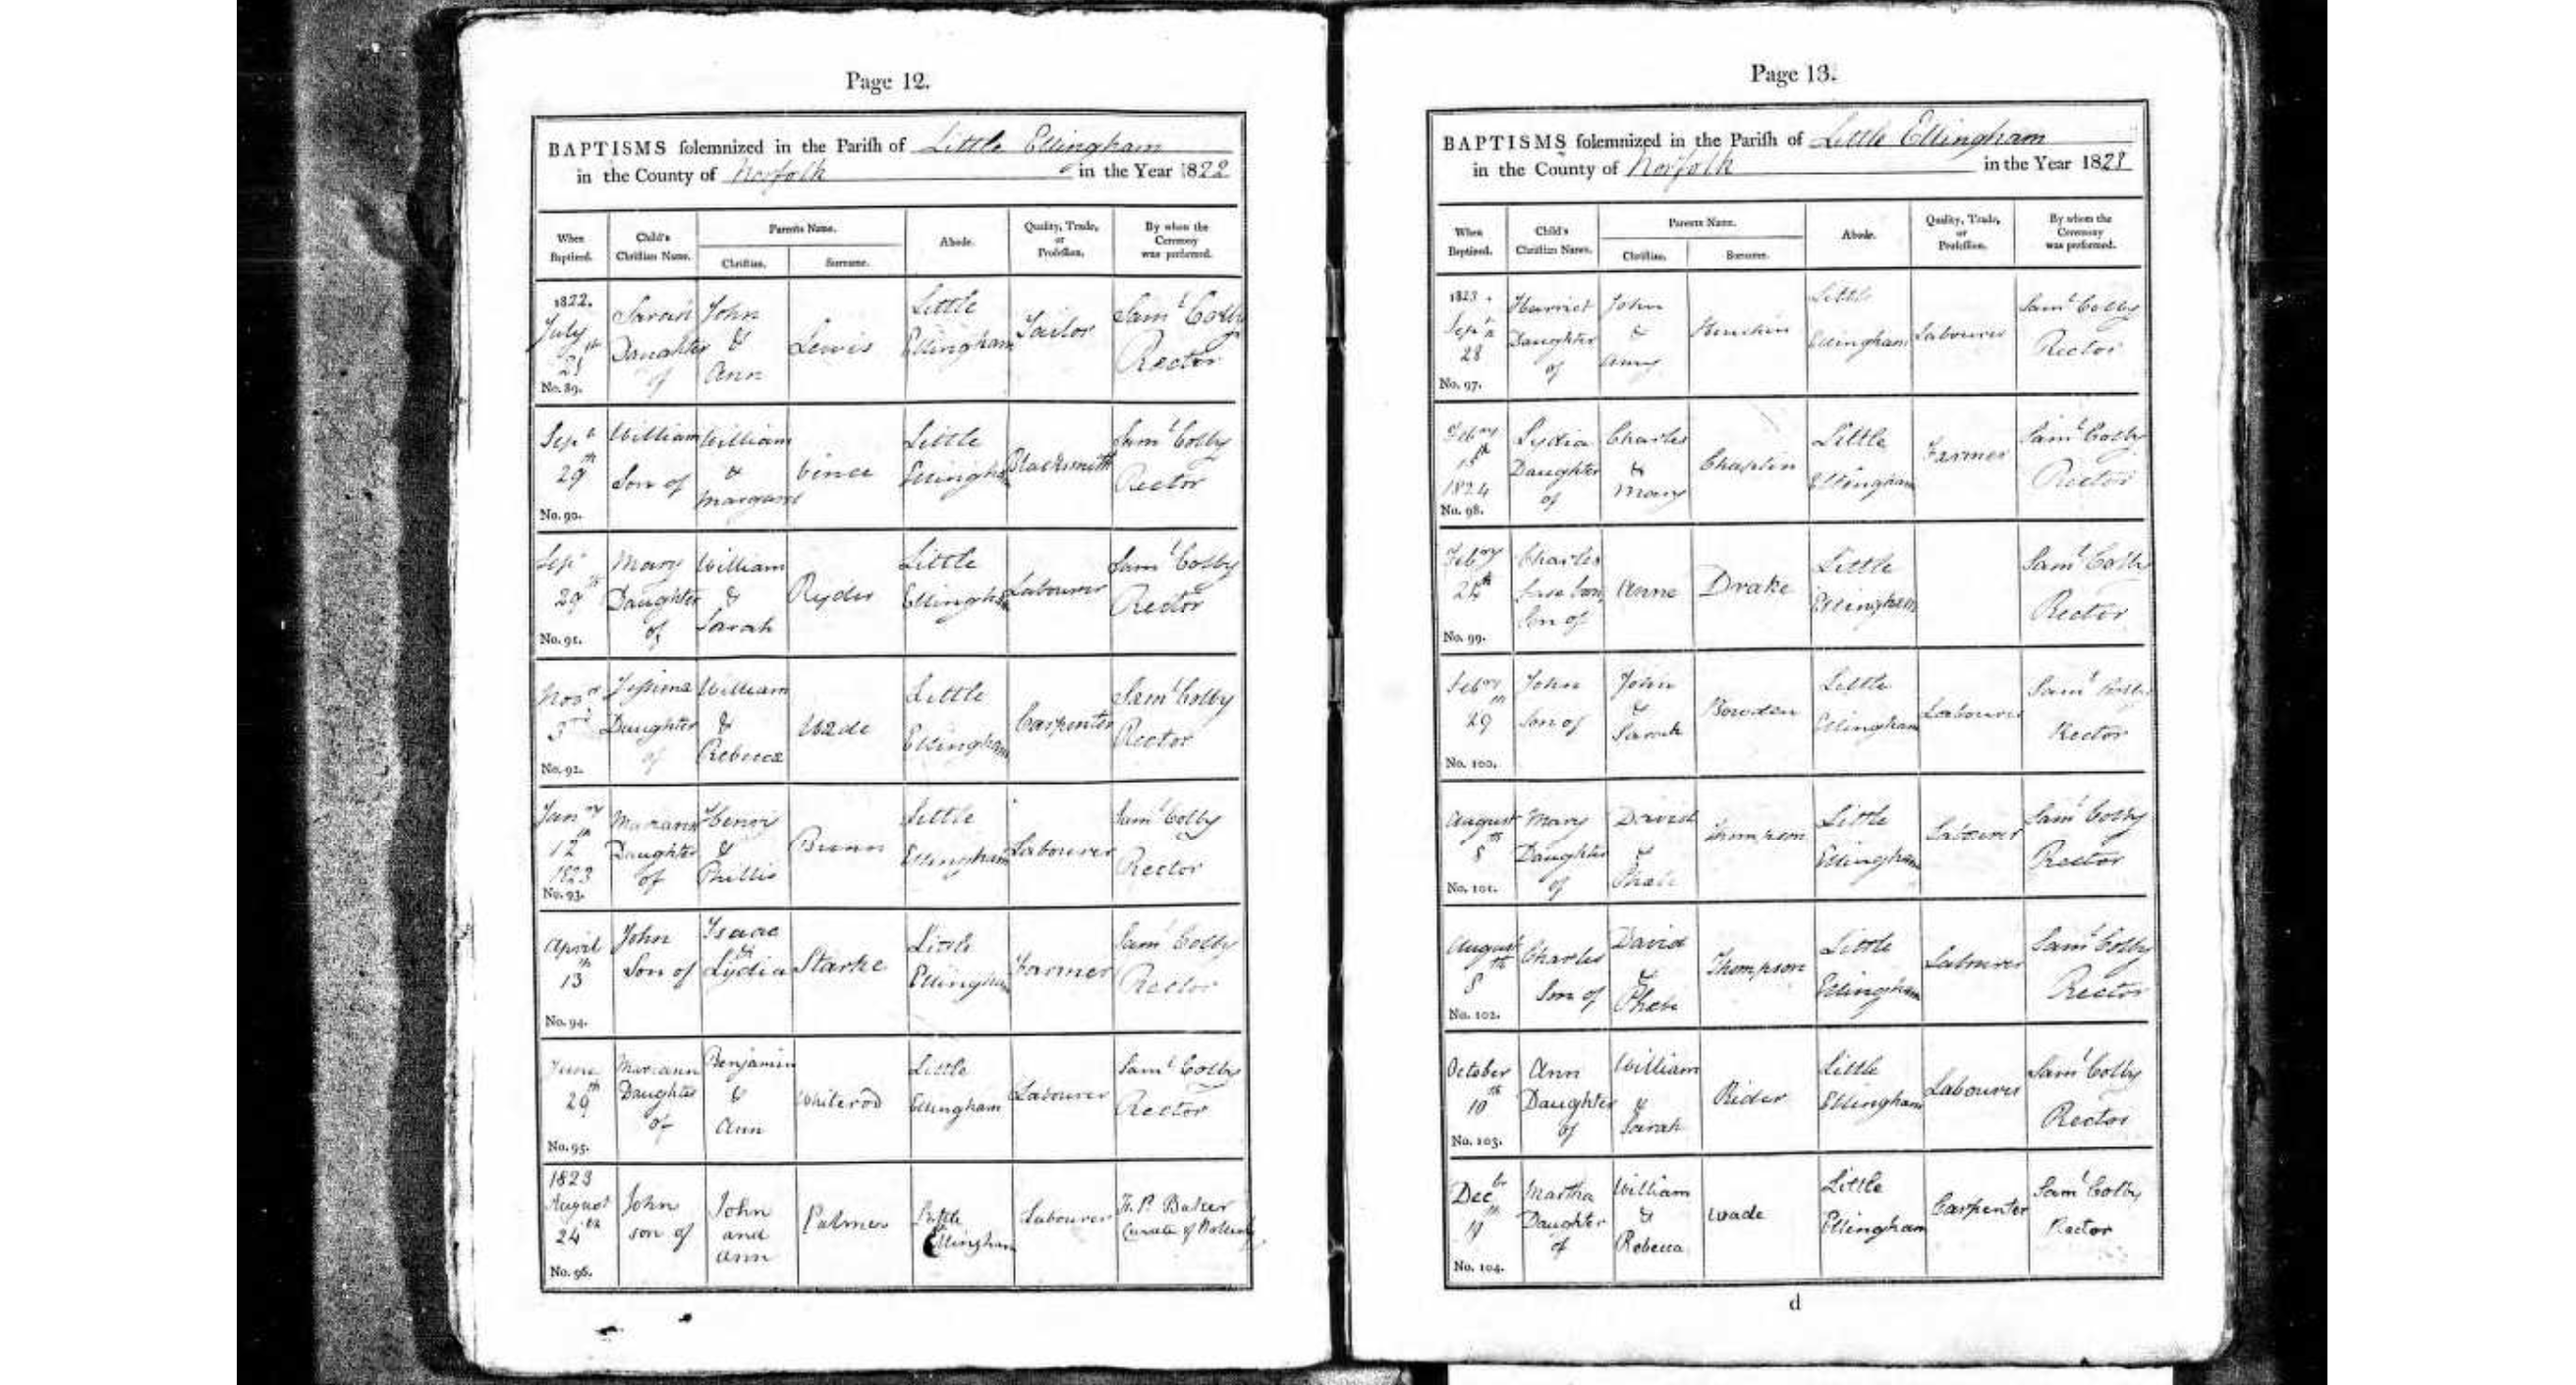 Page 12.
BAPTISMS solemnized in the Parish of Little Ellingham
in the County of Norfolk in the Year 1822
When Baptized. Child's Christian Name. Parents Name. Christian. Surname. Abode. Quality, Trade, or Profession. By whom the Ceremony was performed.
1822. July 21st No. 89. Sarah Daughter of John & Ann Lewis Little Ellingham Tailor Saml Colby Rector
Sepr 29th No. 90. William Son of William & Margaret Vince Little Ellingham Blacksmith Saml Colby Rector
Sepr 29th No. 91. Mary Daughter of William & Sarah Ryder Little Ellingham Labourer Saml Colby Rector
Novr 3rd No. 92. Daughter of William & Rebecca Wade Little Ellingham Carpenter Saml Colby Rector
Jany 12th 1823 No. 93. Mariann Daughter of Henry & Phillis Bunn Little Ellingham Labourer Saml Colby Rector
April 13th No. 94. John Son of Isaac & Lydia Starke Little Ellingham Farmer Saml Colby Rector
June 29th No. 95. Mariann Daughter of Benjamin & Ann Whiterod Little Ellingham Labourer Saml Colby Rector
1823 August 24th No. 96. John son of John and Ann Palmer Little Ellingham Labourer F. P. Baker Curate of
Page 13.
BAPTISMS solemnized in the Parish of Little Ellingham
in the County of Norfolk in the Year 1823
When Baptized. Child's Christian Name. Parents Name. Christian. Surname. Abode. Quality, Trade, or Profession. By whom the Ceremony was performed.
1823. 28 No. 97. Harriet Daughter of John & Amy Little Ellingham Labourer Saml Colby Rector
Febry 15th 1824 No. 98. Lydia Daughter of Charles & Mary Chaplin Little Ellingham Farmer Saml Colby Rector
Febry No. 99. Charles Son of Anne Drake Little Ellingham Saml Colby Rector
Febry 29th No. 100. John Son of John & Sarah Bowden Little Ellingham Labourer Saml Colby Rector
August 8th No. 101. Mary Daughter of David & Phebe Thompson Little Ellingham Labourer Saml Colby Rector
August 8th No. 102. Charles Son of David & Phebe Thompson Little Ellingham Labourer Saml Colby Rector
October 10th No. 103. Ann Daughter of William & Sarah Rider Little Ellingham Labourer Saml Colby Rector
Decbr 19th No. 104. Martha Daughter of William & Rebecca Wade Little Ellingham Carpenter Saml Colby Rector
d